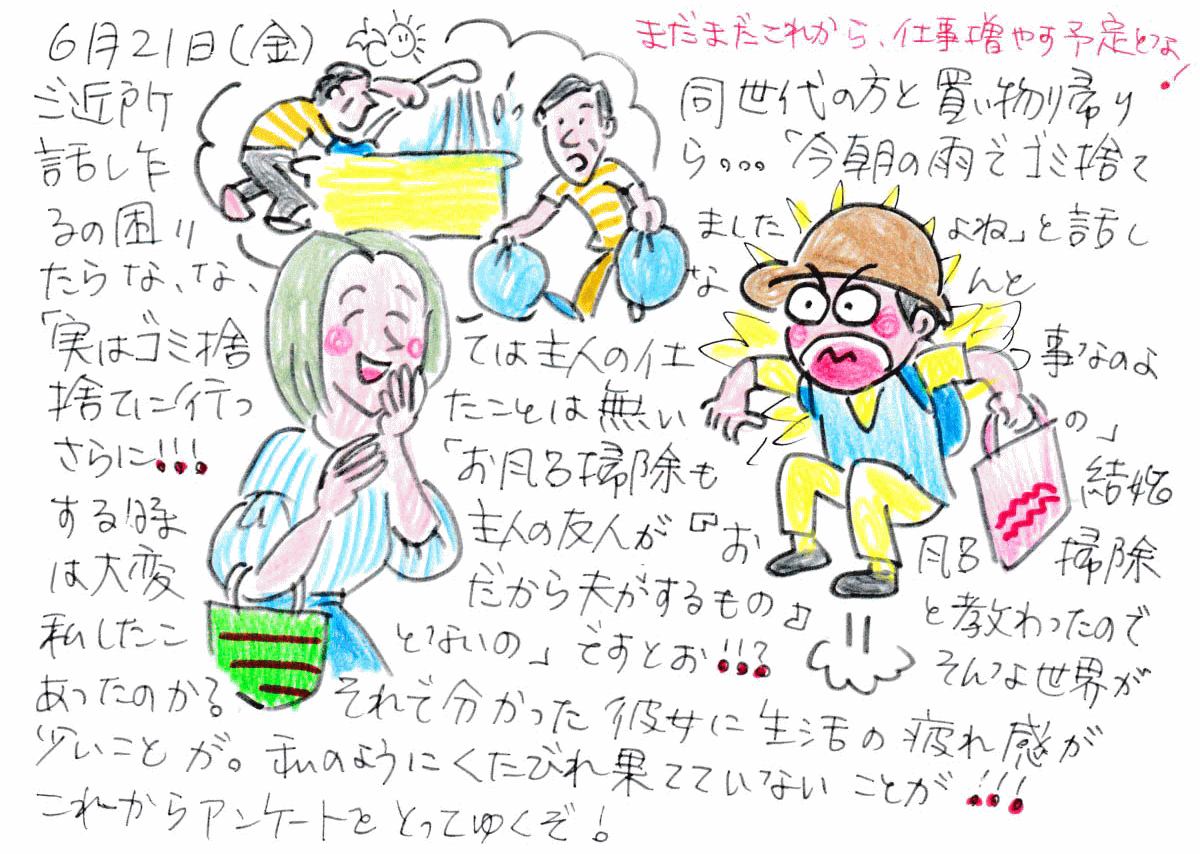 6月21日(金)
まだまだこれから、仕事増やす予定とな!
ご近所 同世代の方と買い物り帰り
話した ら。。。「今朝の雨でゴミ捨て
るの困り ました よね」と話し
たらな、な、 な んと
「実はゴミ捨 ては主人の仕 事なのよ
捨てに行っ たことは無い の」
さらに!!! 「お風呂掃除も 結婚
する時 主人の友人が『お 風呂 掃除
は大変 だから夫がするもの』 と教わったので
私したこ とないの」ですとお!!? そんな世界が
あったのか? それで分かった彼女に生活の疲れ感が
少いことが。私のようにくたびれ果てていないことが!!!
これからアンケートをとってゆくぞ!